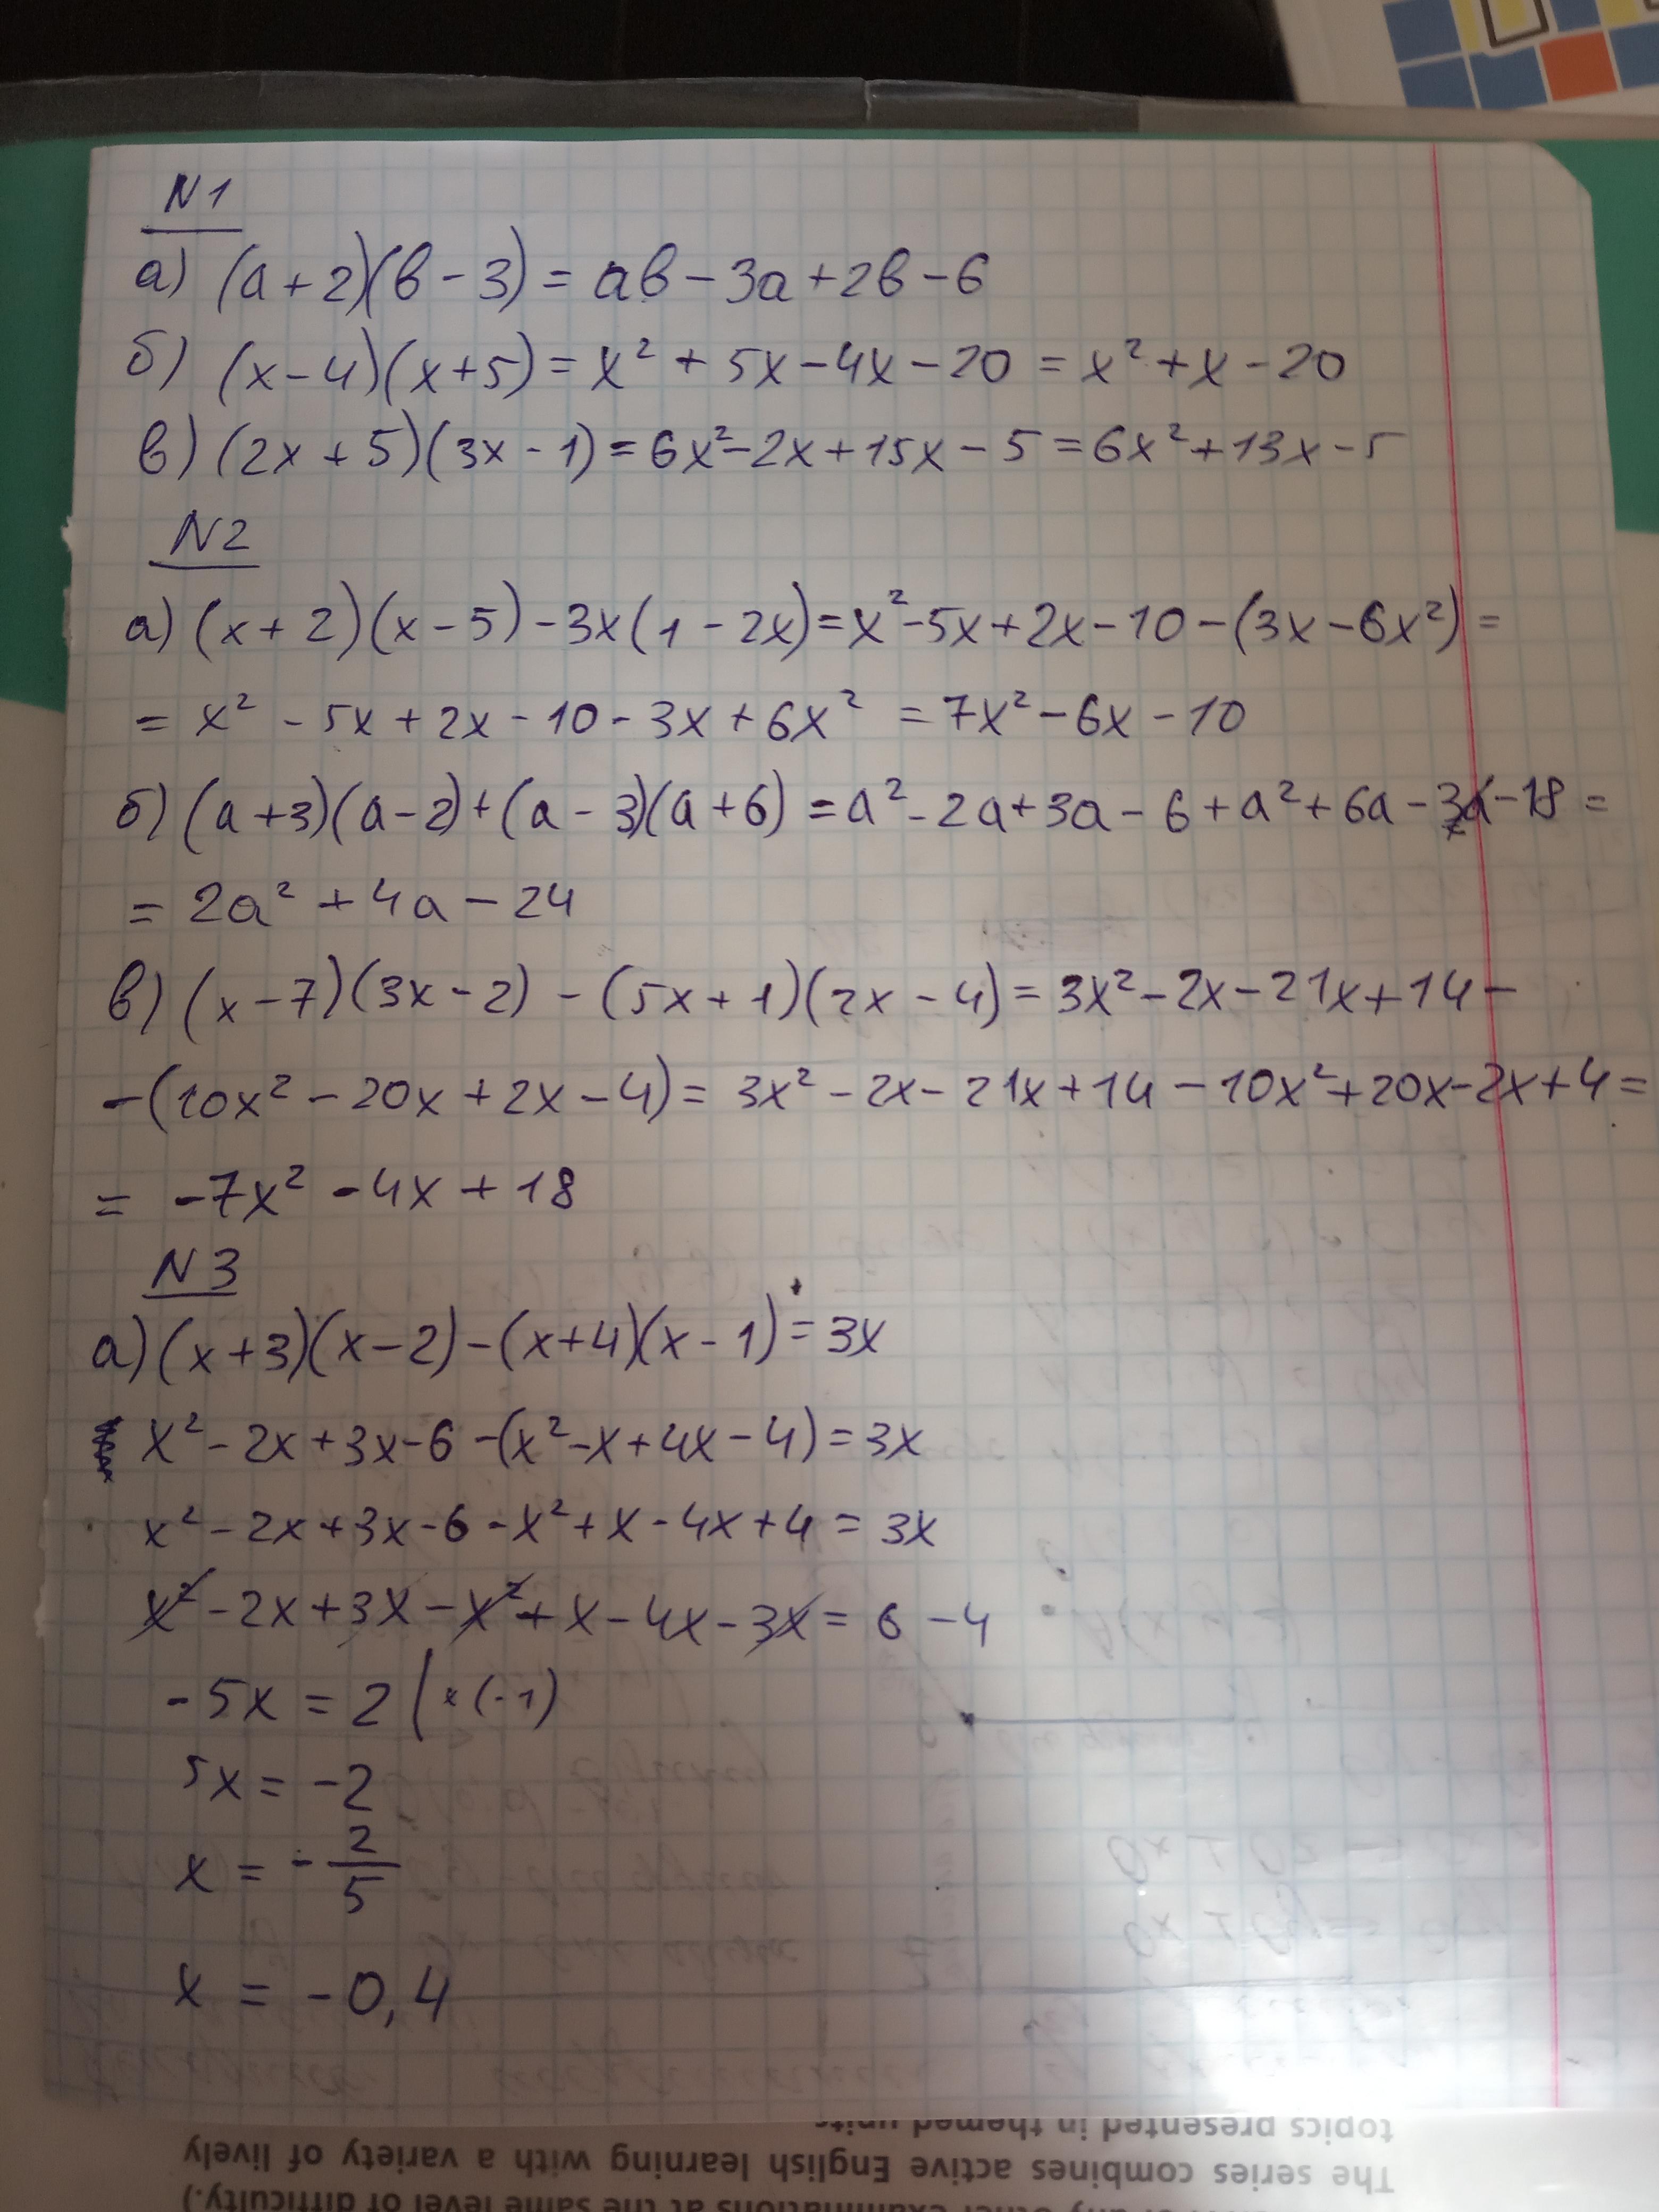 N1
а) (a+2)(b-3) = ab-3a+2b-6
б) (x-4)(x+5) = x² + 5x-4x-20 = x²+x-20
в) (2x+5)(3x-1) = 6x²-2x+15x-5 = 6x²+13x-5
N2
а) (x+2)(x-5)-3x(1-2x) = x²-5x+2x-10-(3x-6x²) =
= x² - 5x+2x-10-3x+6x² = 7x²-6x-10
б) (a+3)(a-2)+(a-3)(a+6) = a²-2a+3a-6+a²+6a-3a-18 =
= 2a² + 4a - 24
в) (x-7)(3x-2) - (5x+1)(2x-4) = 3x²-2x-21x+14-
-(10x²-20x+2x-4) = 3x²-2x-21x+14-10x²+20x-2x+4 =
= -7x² -4x+18
N3
а) (x+3)(x-2)-(x+4)(x-1) = 3x
x²-2x+3x-6-(x²-x+4x-4) = 3x
x²-2x+3x-6-x²+x-4x+4 = 3x
x²-2x+3x-x²+x-4x-3x = 6-4
-5x = 2 |×(-1)
5x = -2
x = -2/5
x = -0,4
topics presented in themed units
The series combines active English learning with a variety of lively
any other examinations at the same level of difficulty.)